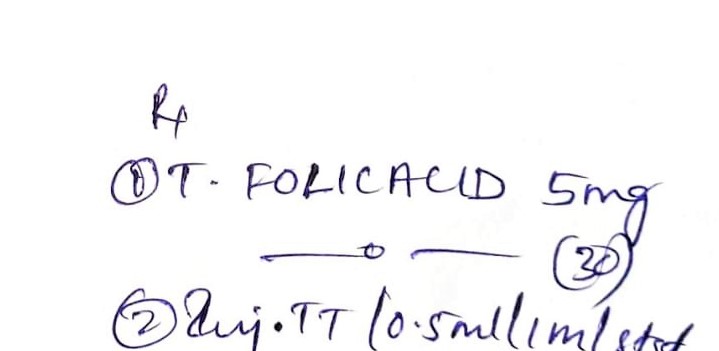 Rx
① T. FOLICACID 5mg
—o— (30)
② Inj. TT (0.5ml/im/stat